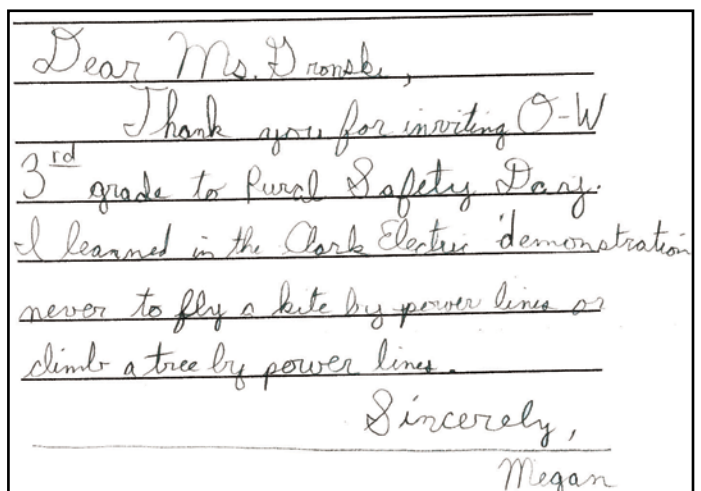 Dear Ms. Gronski,
Thank you for inviting O-W
3rd grade to Rural Safety Day.
I learned in the Clark Electric demonstration
never to fly a kite by power lines or
climb a tree by power lines.
Sincerely,
Megan